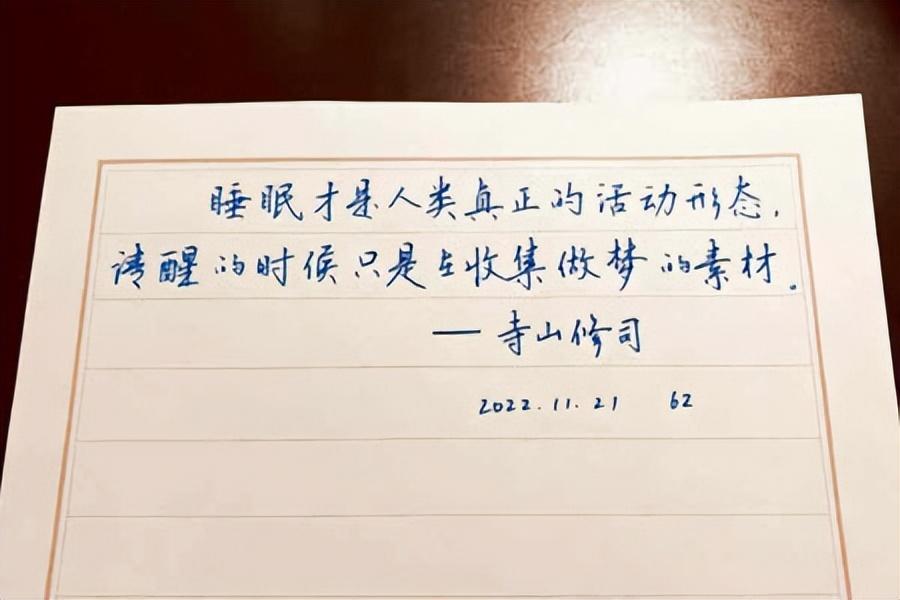 睡眠才是人类真正的活动形态,
清醒的时候只是在收集做梦的素材。
— 寺山修司
2022.11.21 62